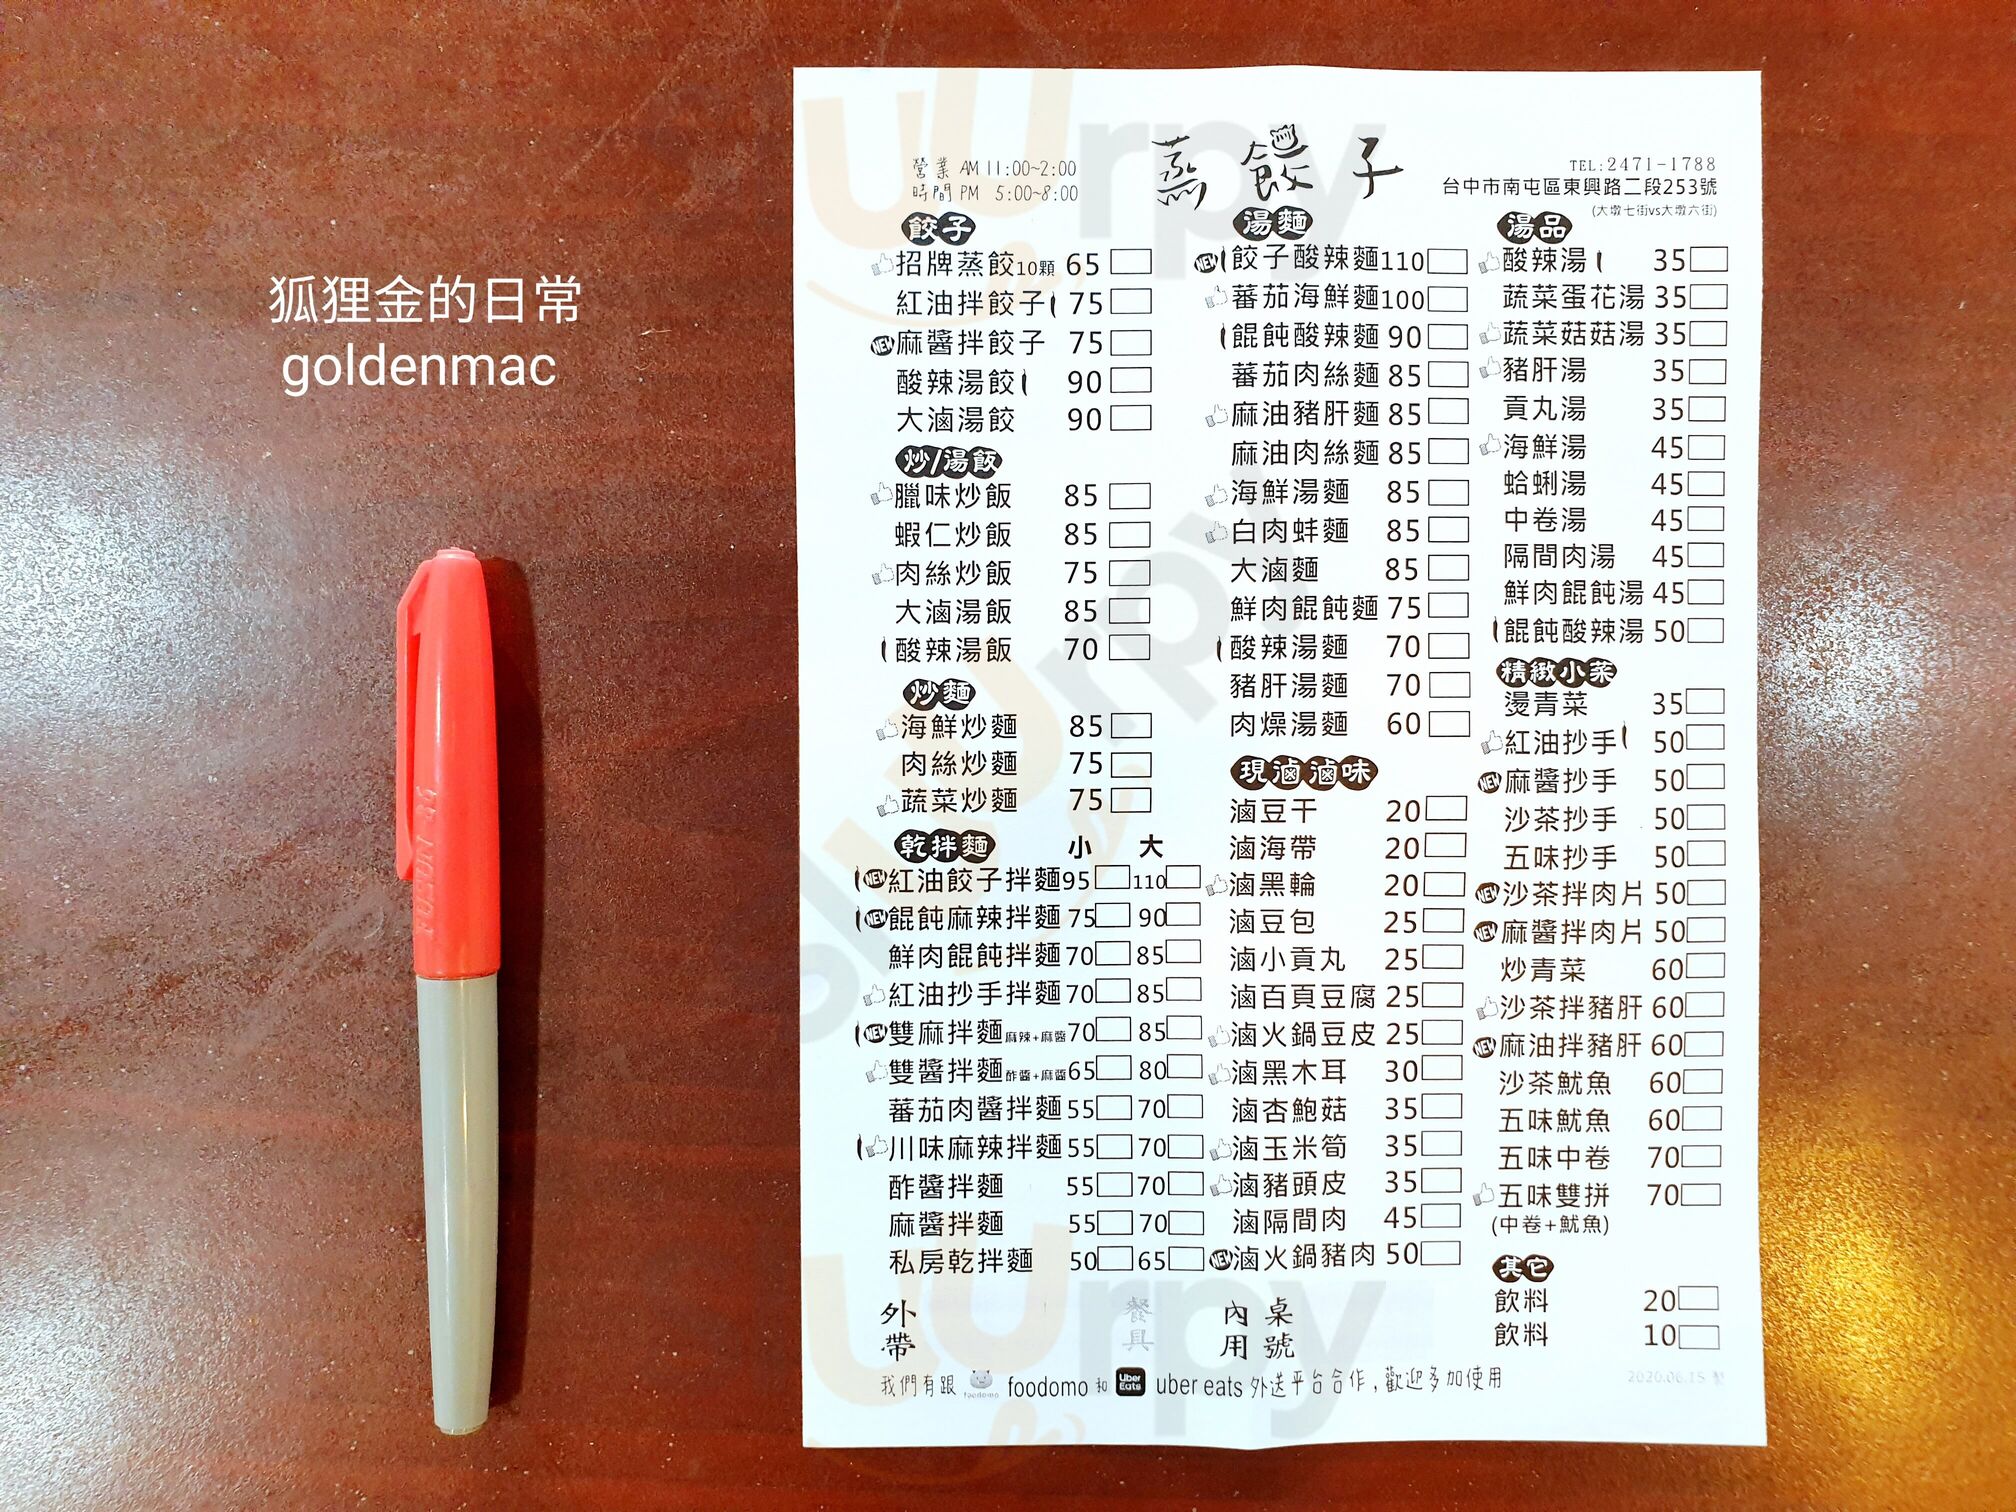 狐狸金的日常
goldenmac
蒸餃子
營業 AM 11:00~2:00
時間 PM 5:00~8:00
TEL:2471-1788
台中市南屯區東興路二段253號
(大墩七街vs大墩六街)
餃子
招牌蒸餃10顆 65
紅油拌餃子 75
NEW 麻醬拌餃子 75
酸辣湯餃 90
大滷湯餃 90
炒/湯飯
臘味炒飯 85
蝦仁炒飯 85
肉絲炒飯 75
大滷湯飯 85
酸辣湯飯 70
炒麵
海鮮炒麵 85
肉絲炒麵 75
蔬菜炒麵 75
乾拌麵 小 大
NEW 紅油餃子拌麵 95 110
NEW 餛飩麻辣拌麵 75 90
鮮肉餛飩拌麵 70 85
紅油抄手拌麵 70 85
NEW 雙麻拌麵 麻辣+麻醬 70 85
雙醬拌麵 酢醬+麻醬 65 80
蕃茄肉醬拌麵 55 70
川味麻辣拌麵 55 70
酢醬拌麵 55 70
麻醬拌麵 55 70
私房乾拌麵 50 65
湯麵
NEW 餃子酸辣麵 110
蕃茄海鮮麵 100
餛飩酸辣麵 90
蕃茄肉絲麵 85
麻油豬肝麵 85
麻油肉絲麵 85
海鮮湯麵 85
白肉蚌麵 85
大滷麵 85
鮮肉餛飩麵 75
酸辣湯麵 70
豬肝湯麵 70
肉燥湯麵 60
現滷滷味
滷豆干 20
滷海帶 20
滷黑輪 20
滷豆包 25
滷小貢丸 25
滷百頁豆腐 25
滷火鍋豆皮 25
滷黑木耳 30
滷杏鮑菇 35
滷玉米筍 35
滷豬頭皮 35
滷隔間肉 45
NEW 滷火鍋豬肉 50
湯品
酸辣湯 35
蔬菜蛋花湯 35
蔬菜菇菇湯 35
豬肝湯 35
貢丸湯 35
海鮮湯 45
蛤蜊湯 45
中卷湯 45
隔間肉湯 45
鮮肉餛飩湯 45
餛飩酸辣湯 50
精緻小菜
燙青菜 35
紅油抄手 50
NEW 麻醬抄手 50
沙茶抄手 50
五味抄手 50
NEW 沙茶拌肉片 50
NEW 麻醬拌肉片 50
炒青菜 60
沙茶拌豬肝 60
NEW 麻油拌豬肝 60
沙茶魷魚 60
五味魷魚 60
五味中卷 70
五味雙拼 70
(中卷+魷魚)
其它
飲料 20
飲料 10
外帶 餐具 內用 桌號
我們有跟 foodomo foodomo 和 Uber Eats uber eats 外送平台合作,歡迎多加使用
2020.06.15 製